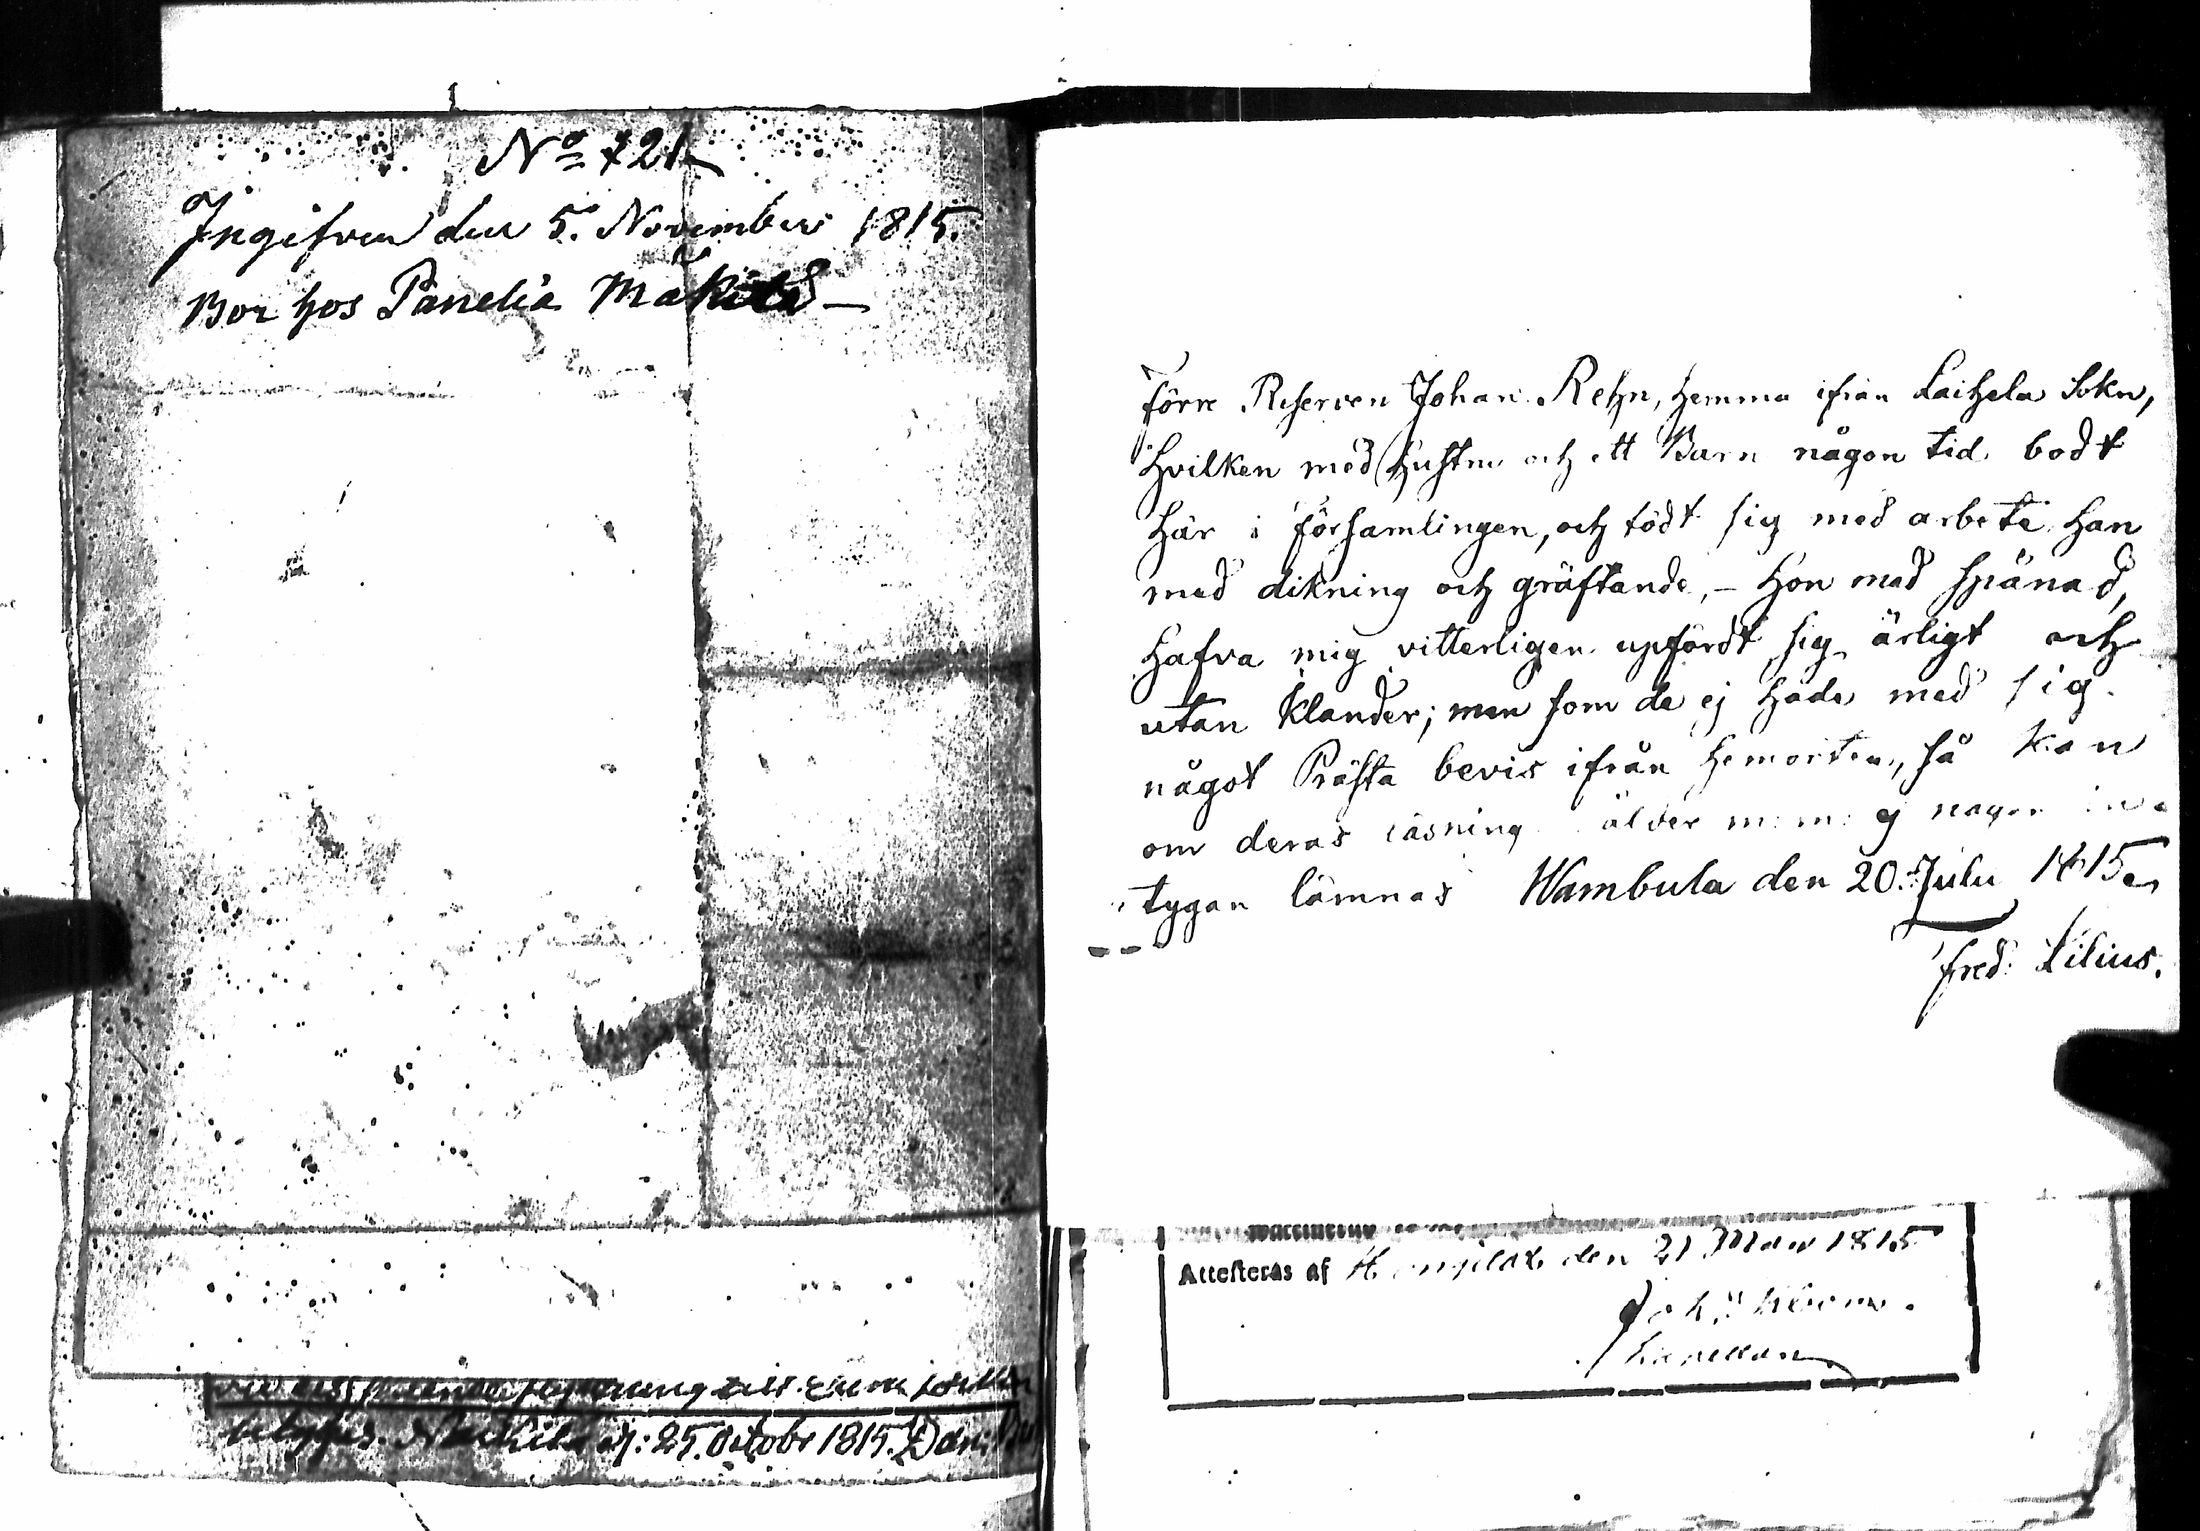 No 721
Ingifven den 5. November 1815.
Bor hos Panelia Mäkilä
Förre Reserven Johan Rehn, hemma ifrån Laihela Sokn,
hvilken med Hustru och ett Barn någon tid bodt
här i församlingen, och födt sig med arbete, han
med dikning och gräftande, – hon med spånad,
hafva mig vitterligen upfördt sig ärligt och
utan klander; men som de ej hade med sig
något Prästa bevis ifrån hemorten, så kan
om deras läsning ålder m: m: ej någon
tygan lämnas Wambula den 20. Julii 1815.
Fred: Lilius.
Attesteras af den 21 Maii 1815
Capellan
25. Octobr 1815.